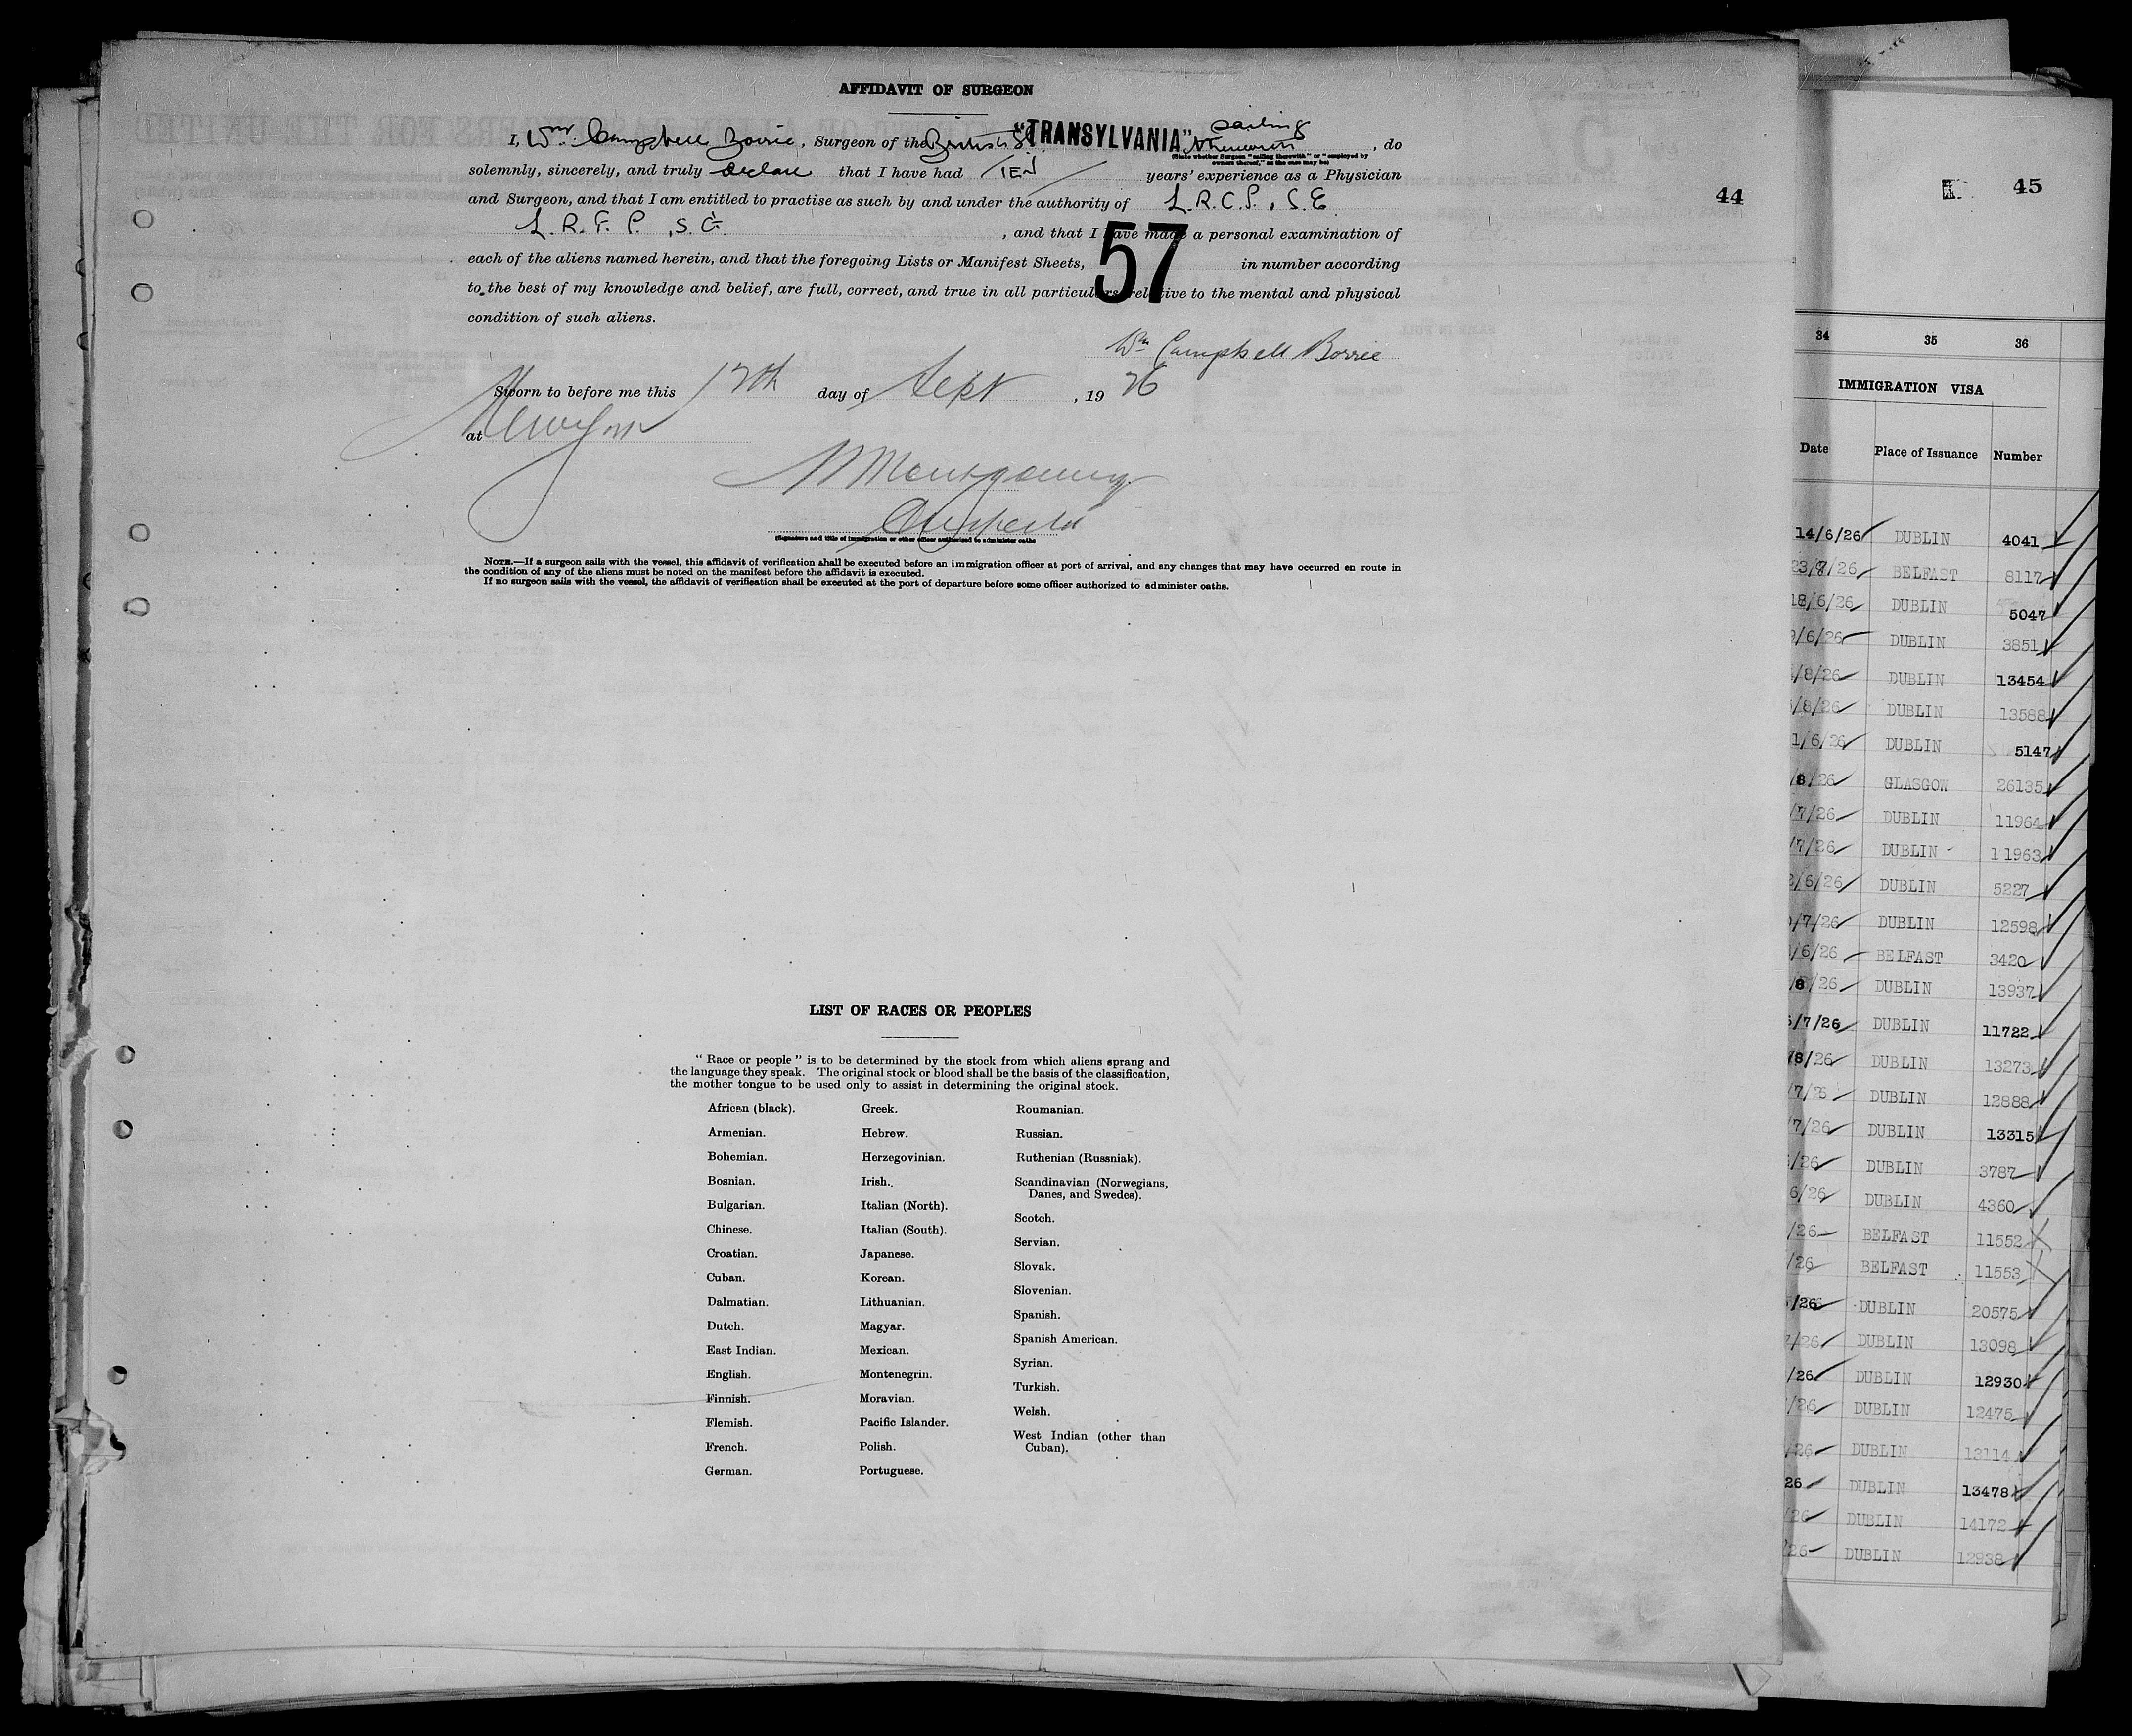 AFFIDAVIT OF SURGEON
I, Wm. Campbell Borrie, Surgeon of the British SS. "TRANSYLVANIA" sailing therewith, do
(State whether Surgeon "sailing therewith" or "employed by owners thereof," as the case may be)
solemnly, sincerely, and truly declare that I have had TEN years' experience as a Physician
and Surgeon, and that I am entitled to practise as such by and under the authority of L.R.C.P., S.E.
L.R.F.P., S.G. , and that I have made a personal examination of
each of the aliens named herein, and that the foregoing Lists or Manifest Sheets, 57 in number according
to the best of my knowledge and belief, are full, correct, and true in all particulars relative to the mental and physical
condition of such aliens.
Wm Campbell Borrie
Sworn to before me this 12th day of Sept , 19 26
at
Montgomery
(Signature and title of immigration or other officer authorized to administer oaths
NOTE.—If a surgeon sails with the vessel, this affidavit of verification shall be executed before an immigration officer at port of arrival, and any changes that may have occurred en route in
the condition of any of the aliens must be noted on the manifest before the affidavit is executed.
If no surgeon sails with the vessel, the affidavit of verification shall be executed at the port of departure before some officer authorized to administer oaths.
44
LIST OF RACES OR PEOPLES
"Race or people" is to be determined by the stock from which aliens sprang and
the language they speak. The original stock or blood shall be the basis of the classification,
the mother tongue to be used only to assist in determining the original stock.
African (black).
Armenian.
Bohemian.
Bosnian.
Bulgarian.
Chinese.
Croatian.
Cuban.
Dalmatian.
Dutch.
East Indian.
English.
Finnish.
Flemish.
French.
German.
Greek.
Hebrew.
Herzegovinian.
Irish.
Italian (North).
Italian (South).
Japanese.
Korean.
Lithuanian.
Magyar.
Mexican.
Montenegrin.
Moravian.
Pacific Islander.
Polish.
Portuguese.
Roumanian.
Russian.
Ruthenian (Russniak).
Scandinavian (Norwegians,
Danes, and Swedes).
Scotch.
Servian.
Slovak.
Slovenian.
Spanish.
Spanish American.
Syrian.
Turkish.
Welsh.
West Indian (other than
Cuban).
45
34 35 36
IMMIGRATION VISA
Date Place of Issuance Number
14/6/26 DUBLIN 4041
23/7/26 BELFAST 8117
18/6/26 DUBLIN 5047
9/6/26 DUBLIN 3851
/8/26 DUBLIN 13454
/8/26 DUBLIN 13588
1/6/26 DUBLIN 5147
/8/26 GLASGOW 26135
/7/26 DUBLIN 11964
/7/26 DUBLIN 11963
2/6/26 DUBLIN 5227
/7/26 DUBLIN 12598
/6/26 BELFAST 3420
/8/26 DUBLIN 13937
/7/26 DUBLIN 11722
/8/26 DUBLIN 13273
/7/26 DUBLIN 12888
/7/26 DUBLIN 13315
/26 DUBLIN 3787
6/26 DUBLIN 4360
/26 BELFAST 11552
/26 BELFAST 11553
/26 DUBLIN 20575
/26 DUBLIN 13098
/26 DUBLIN 12930
/26 DUBLIN 12475
/26 DUBLIN 13114
26 DUBLIN 13478
/26 DUBLIN 14172
/26 DUBLIN 12938